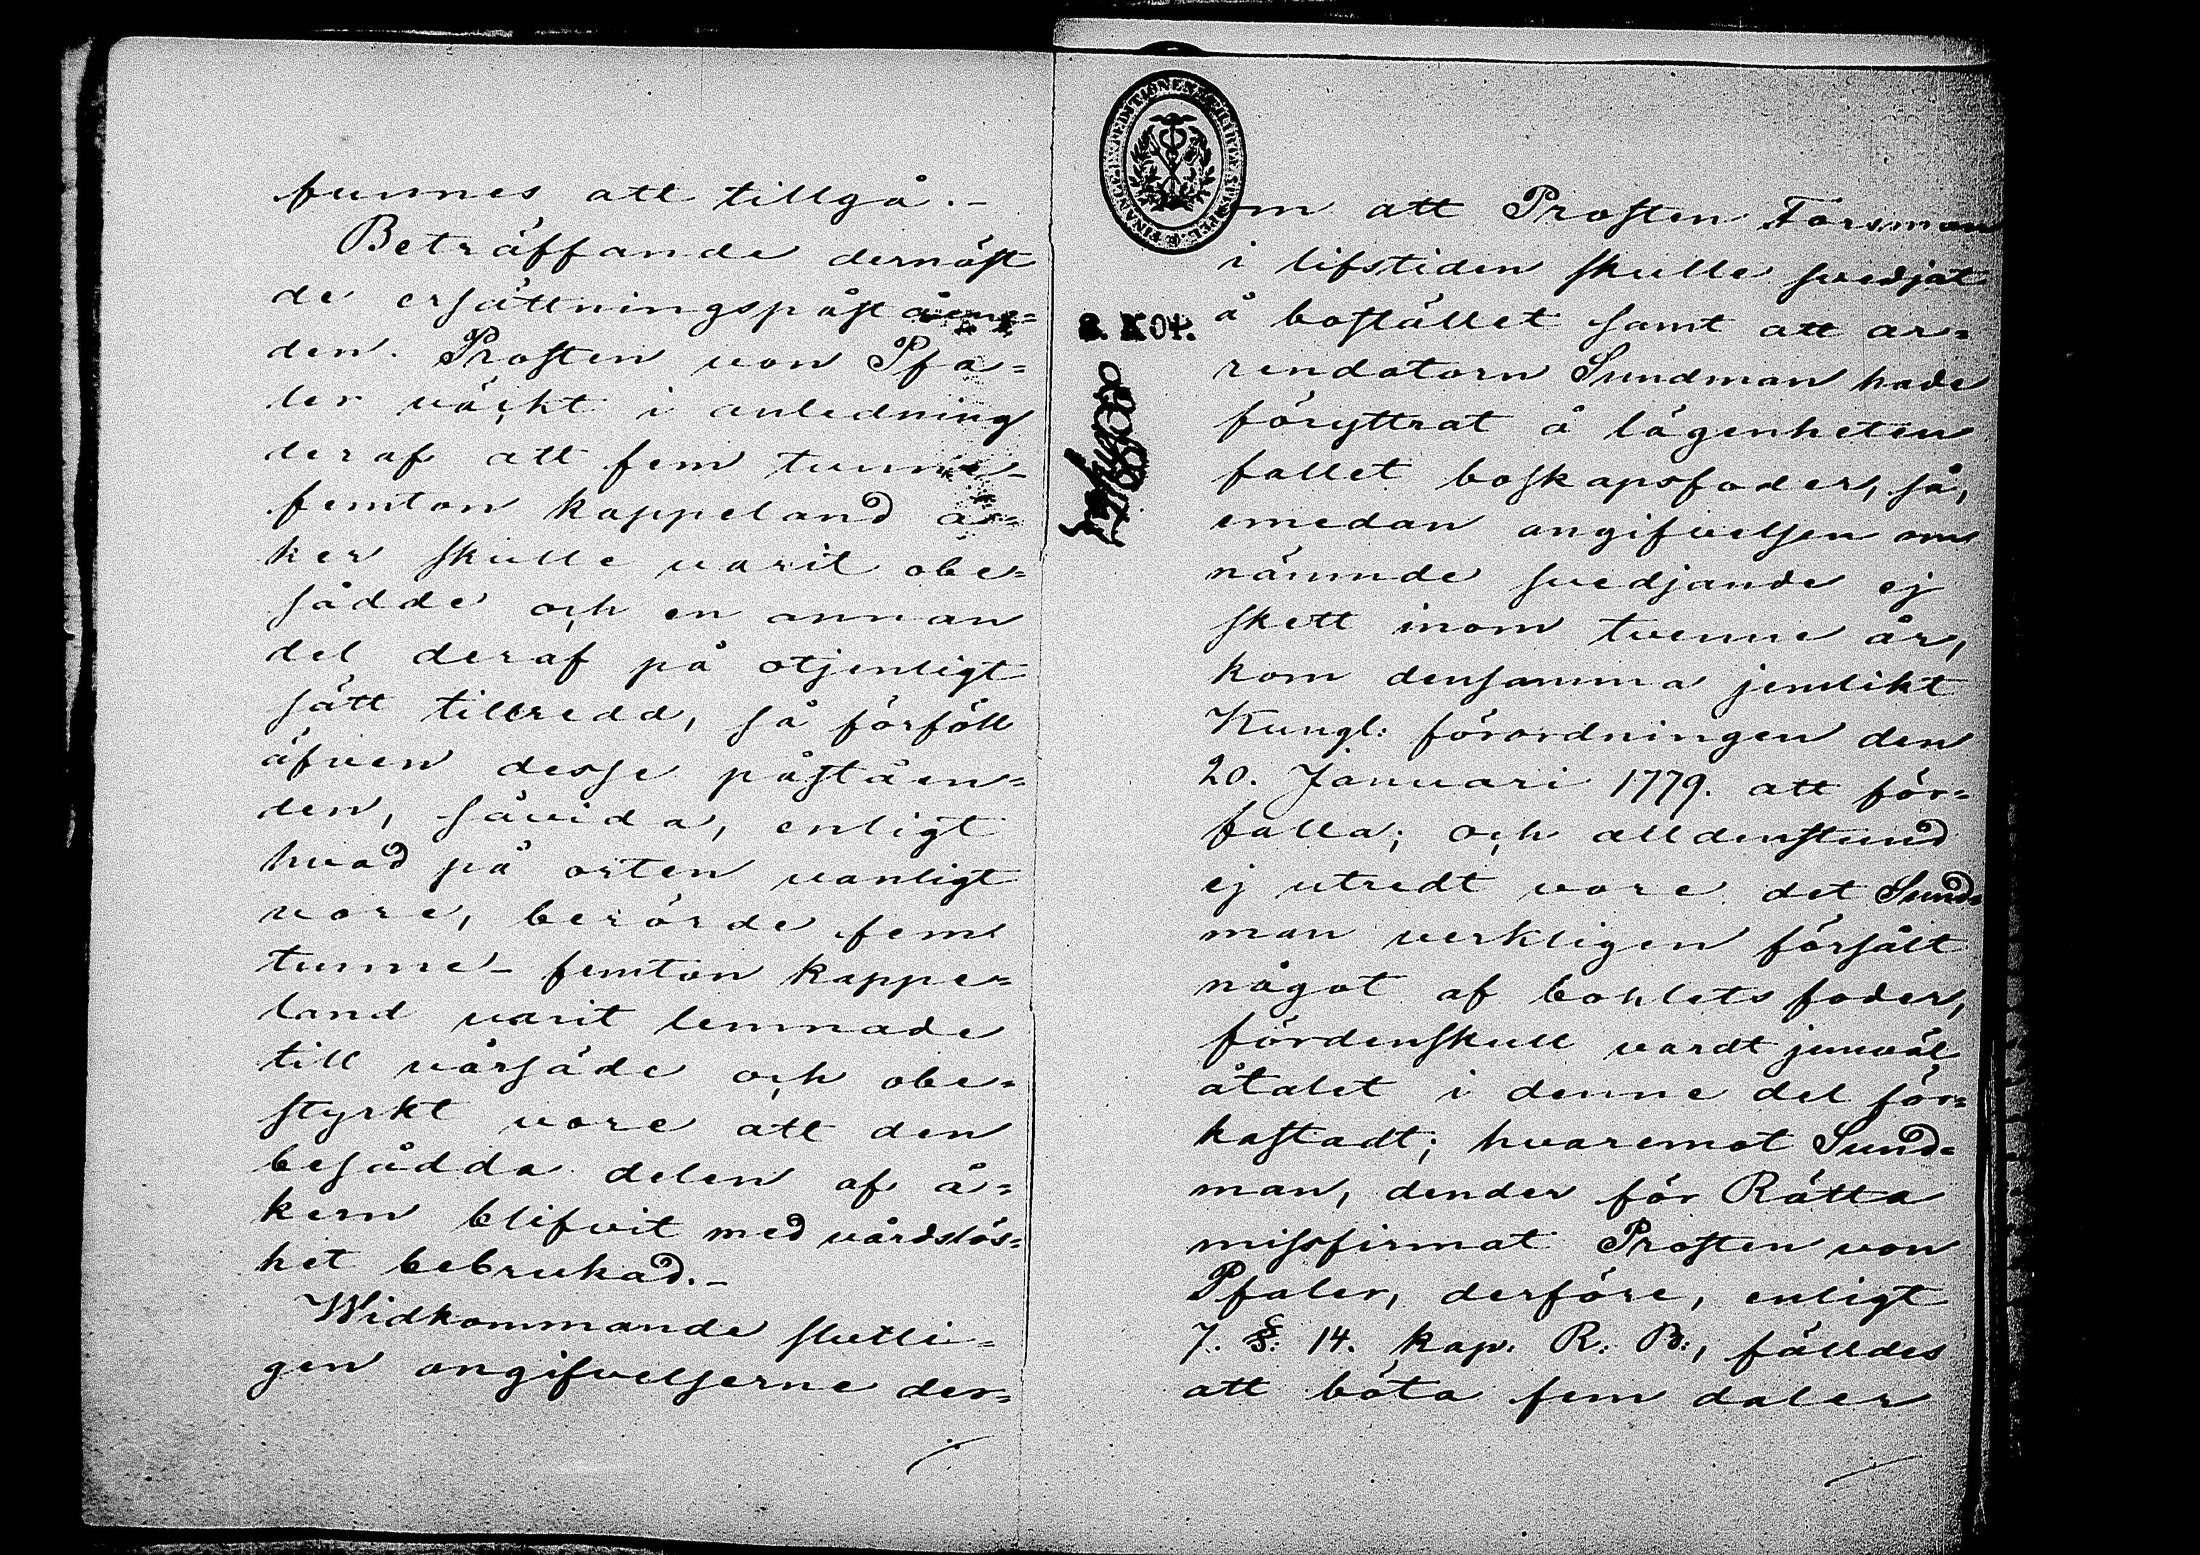 funnes att tillgå.-
Beträffande dernäst
de ersättningspåståen=
den Prosten von Pfa=
ler väckt i anledning
deraf att fem tunne-
femton kappeland å=
ker skulle varit obe=
sådde och en annan
del deraf på otjenligt
sätt tillredd, så förföll
äfven desse påståen=
den, såvida, enligt
hvad på orten vanligt
vore, berörde fem
tunne- femton kappe=
land varit lemnade
till vårsäde och obe=
styrkt vore att den
besådda delen af å=
kern blifvit med vårdslös=
het bebrukad.-
Widkommande slutli=
gen angifvelserne der=
om att Prosten Forsman
i lifstiden skulle svedjat
å bostället samt att ar=
rendatorn Sundman hade
föryttrat å lägenheten
fallet boskapsfoder, så,
emedan angifvelsen om
nämnde svedjande ej
skett inom tvenne år,
kom densamma jemlikt
Kungl: förordningen den
20. Januari 1779. att för=
falla; och alldenstund
ej utredt vore det Sund=
man verkligen försålt
något af bohlets foder,
fördenskull vardt jemväl
åtalet i denne del för=
kastadt; hvaremot Sund=
man, dender för Rätta
missfirmat Prosten von
Pfaler, derföre, enligt
7. §. 14. kap: R: B:, fälldes
att böta fem daler
2. KOP.